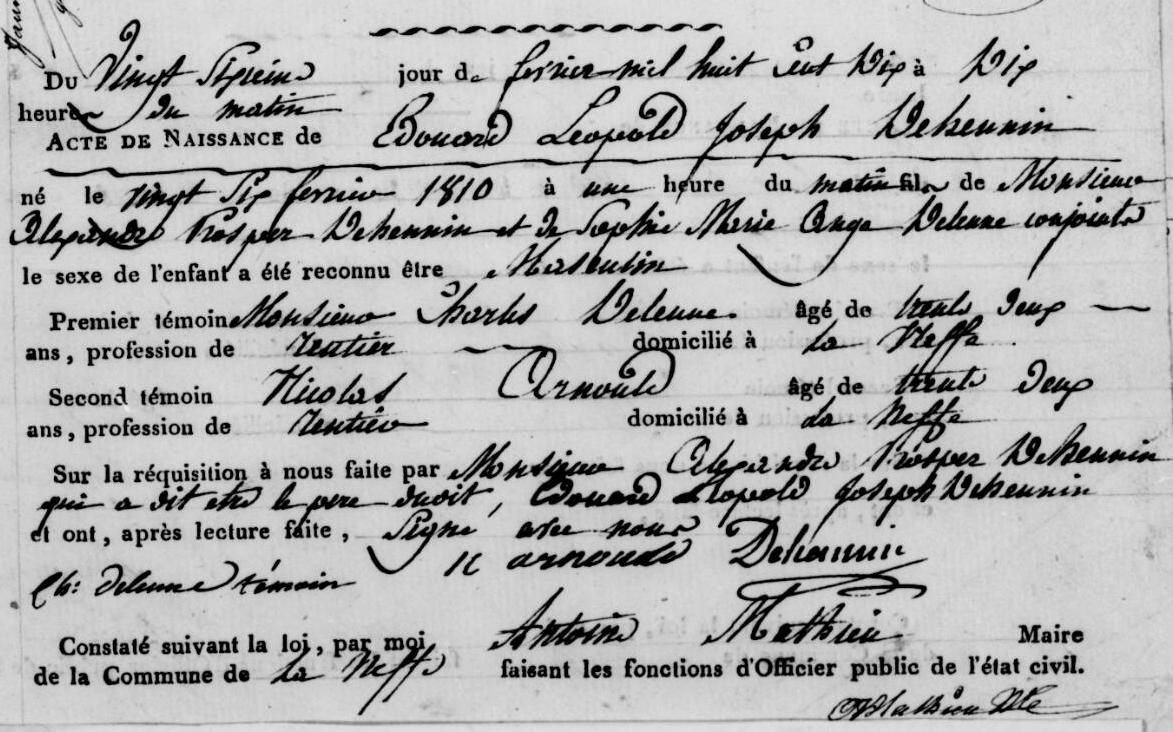 Du Vingt Sixieme jour de fevrier mil huit Cent Dix à Dix
heures du matin
ACTE DE NAISSANCE de Edouard Leopold Joseph Dehennin
né le vingt Six fevrier 1810 à une heure du matin fils de Monsieur
Alexandre Prosper Dehennin et de Sophie Marie Ange Delenne conjoints
le sexe de l'enfant a été reconnu être Masculin
Premier témoin Monsieur Charles Delenne. âgé de trente Deux
ans, profession de Rentier domicilié à la Neffe.
Second témoin Nicolas Arnould âgé de trente Deux
ans, profession de Rentier domicilié à la Neffe
Sur la réquisition à nous faite par Monsieur Alexandre Prosper Dehennin
qui a dit etre le pere dudit, Edouard Leopold Joseph Dehennin
et ont, après lecture faite, Signé avec nous
N arnould Dehennin
Ch: delenne témoin
Constaté suivant la loi, par moi Antoine Mathieu Maire
de la Commune de la Neffe faisant les fonctions d'Officier public de l'état civil.